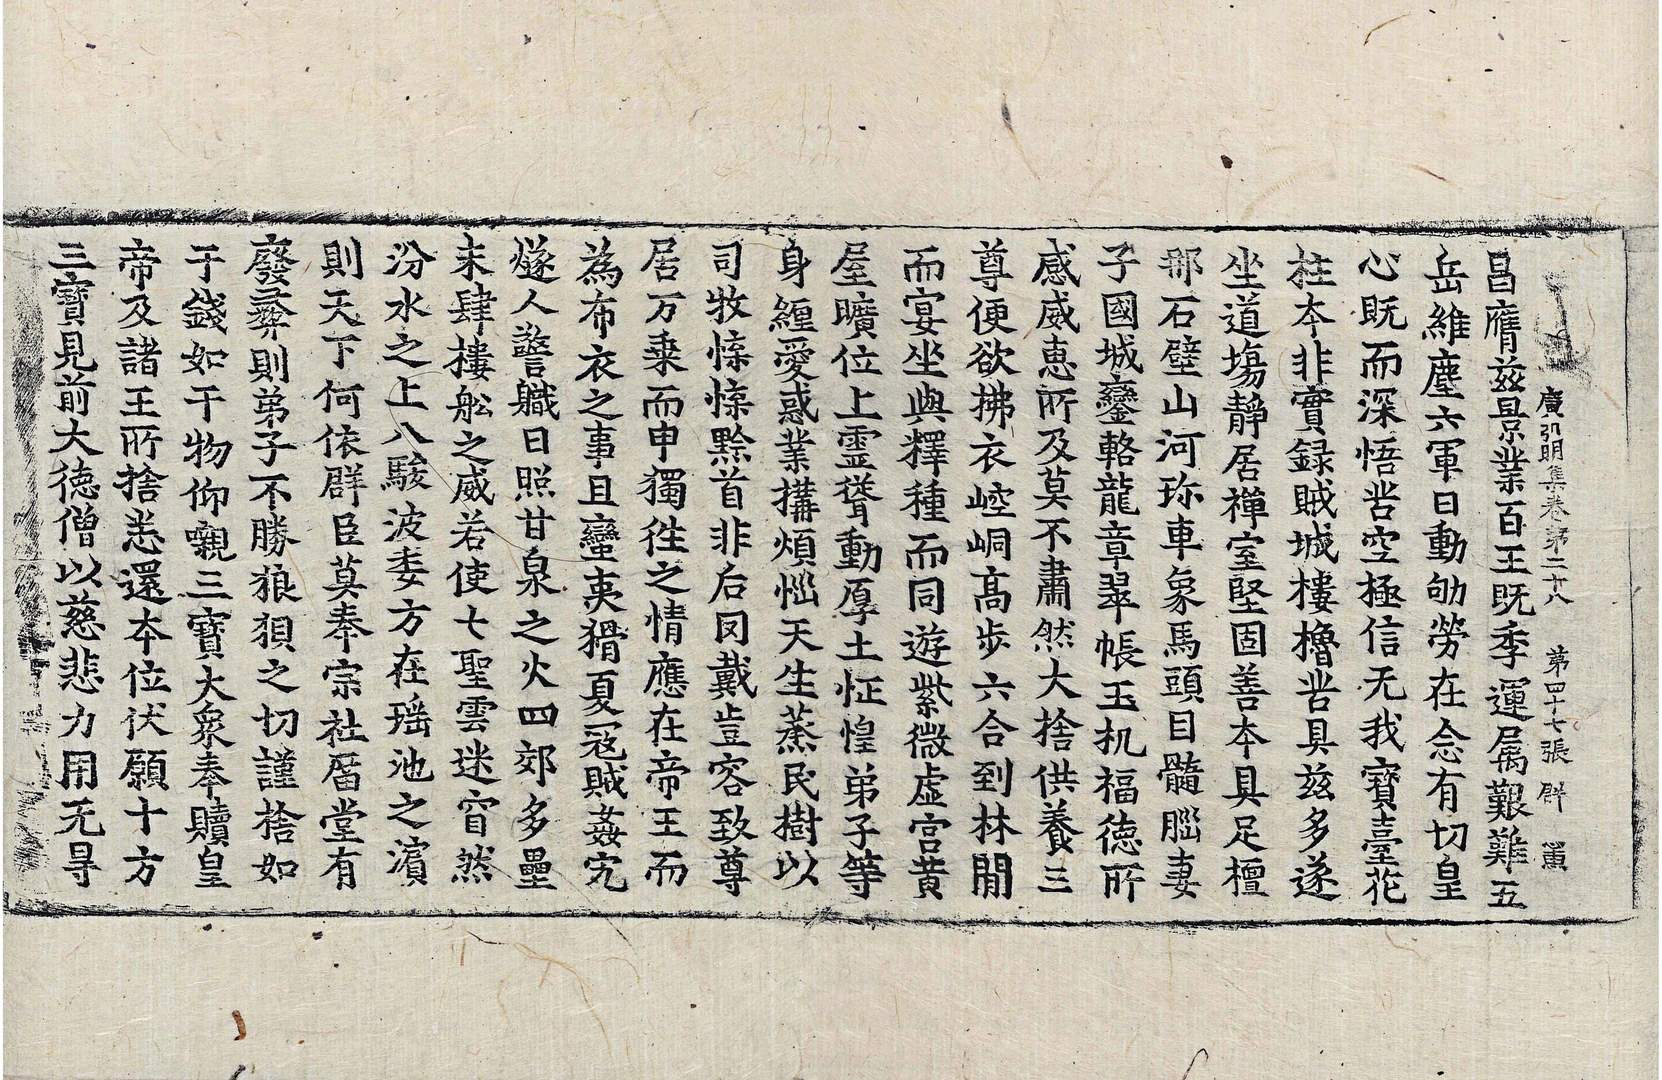 廣弘明集卷第二十八　第四十七張　群
昌膺兹景業百王旣季運属艱難五
岳維塵六軍日動劬勞在念有切皇
心旣而深悟苦空極信无我寶臺花
柱本非實録賊城樓櫓昔具兹多遂
坐道場靜居禪室堅固善本具足檀
那石壁山河珎車象馬頭目髓腦妻
子國城鑾輅龍章翠帳玉机福徳所
感威恵所及莫不肅然大捨供養三
尊便欲拂衣崆峒髙步六合到林閒
而宴坐與釋種而同遊紫微虚宫黄
屋曠位上霊聳動厚土怔惶弟子等
身纏愛惑業搆煩惱天生蒸民樹以
司牧慄慄黔首非后罔戴豈容致尊
居万乗而申獨徃之情應在帝王而
為布衣之事且蠻夷猾夏冦賊姦宄
燧人警職日照甘泉之火四郊多壘
未肆樓舩之威若使七聖雲迷窅然
汾水之上八駿波委方在瑶池之濵
則天下何依群臣莫奉宗社厝堂有
廢彛則弟子不勝狼狽之切謹捨如
干錢如干物仰嚫三寶大衆奉贖皇
帝及諸王所捨悉還本位伏願十方
三寶見前大徳僧以慈悲力用无㝵